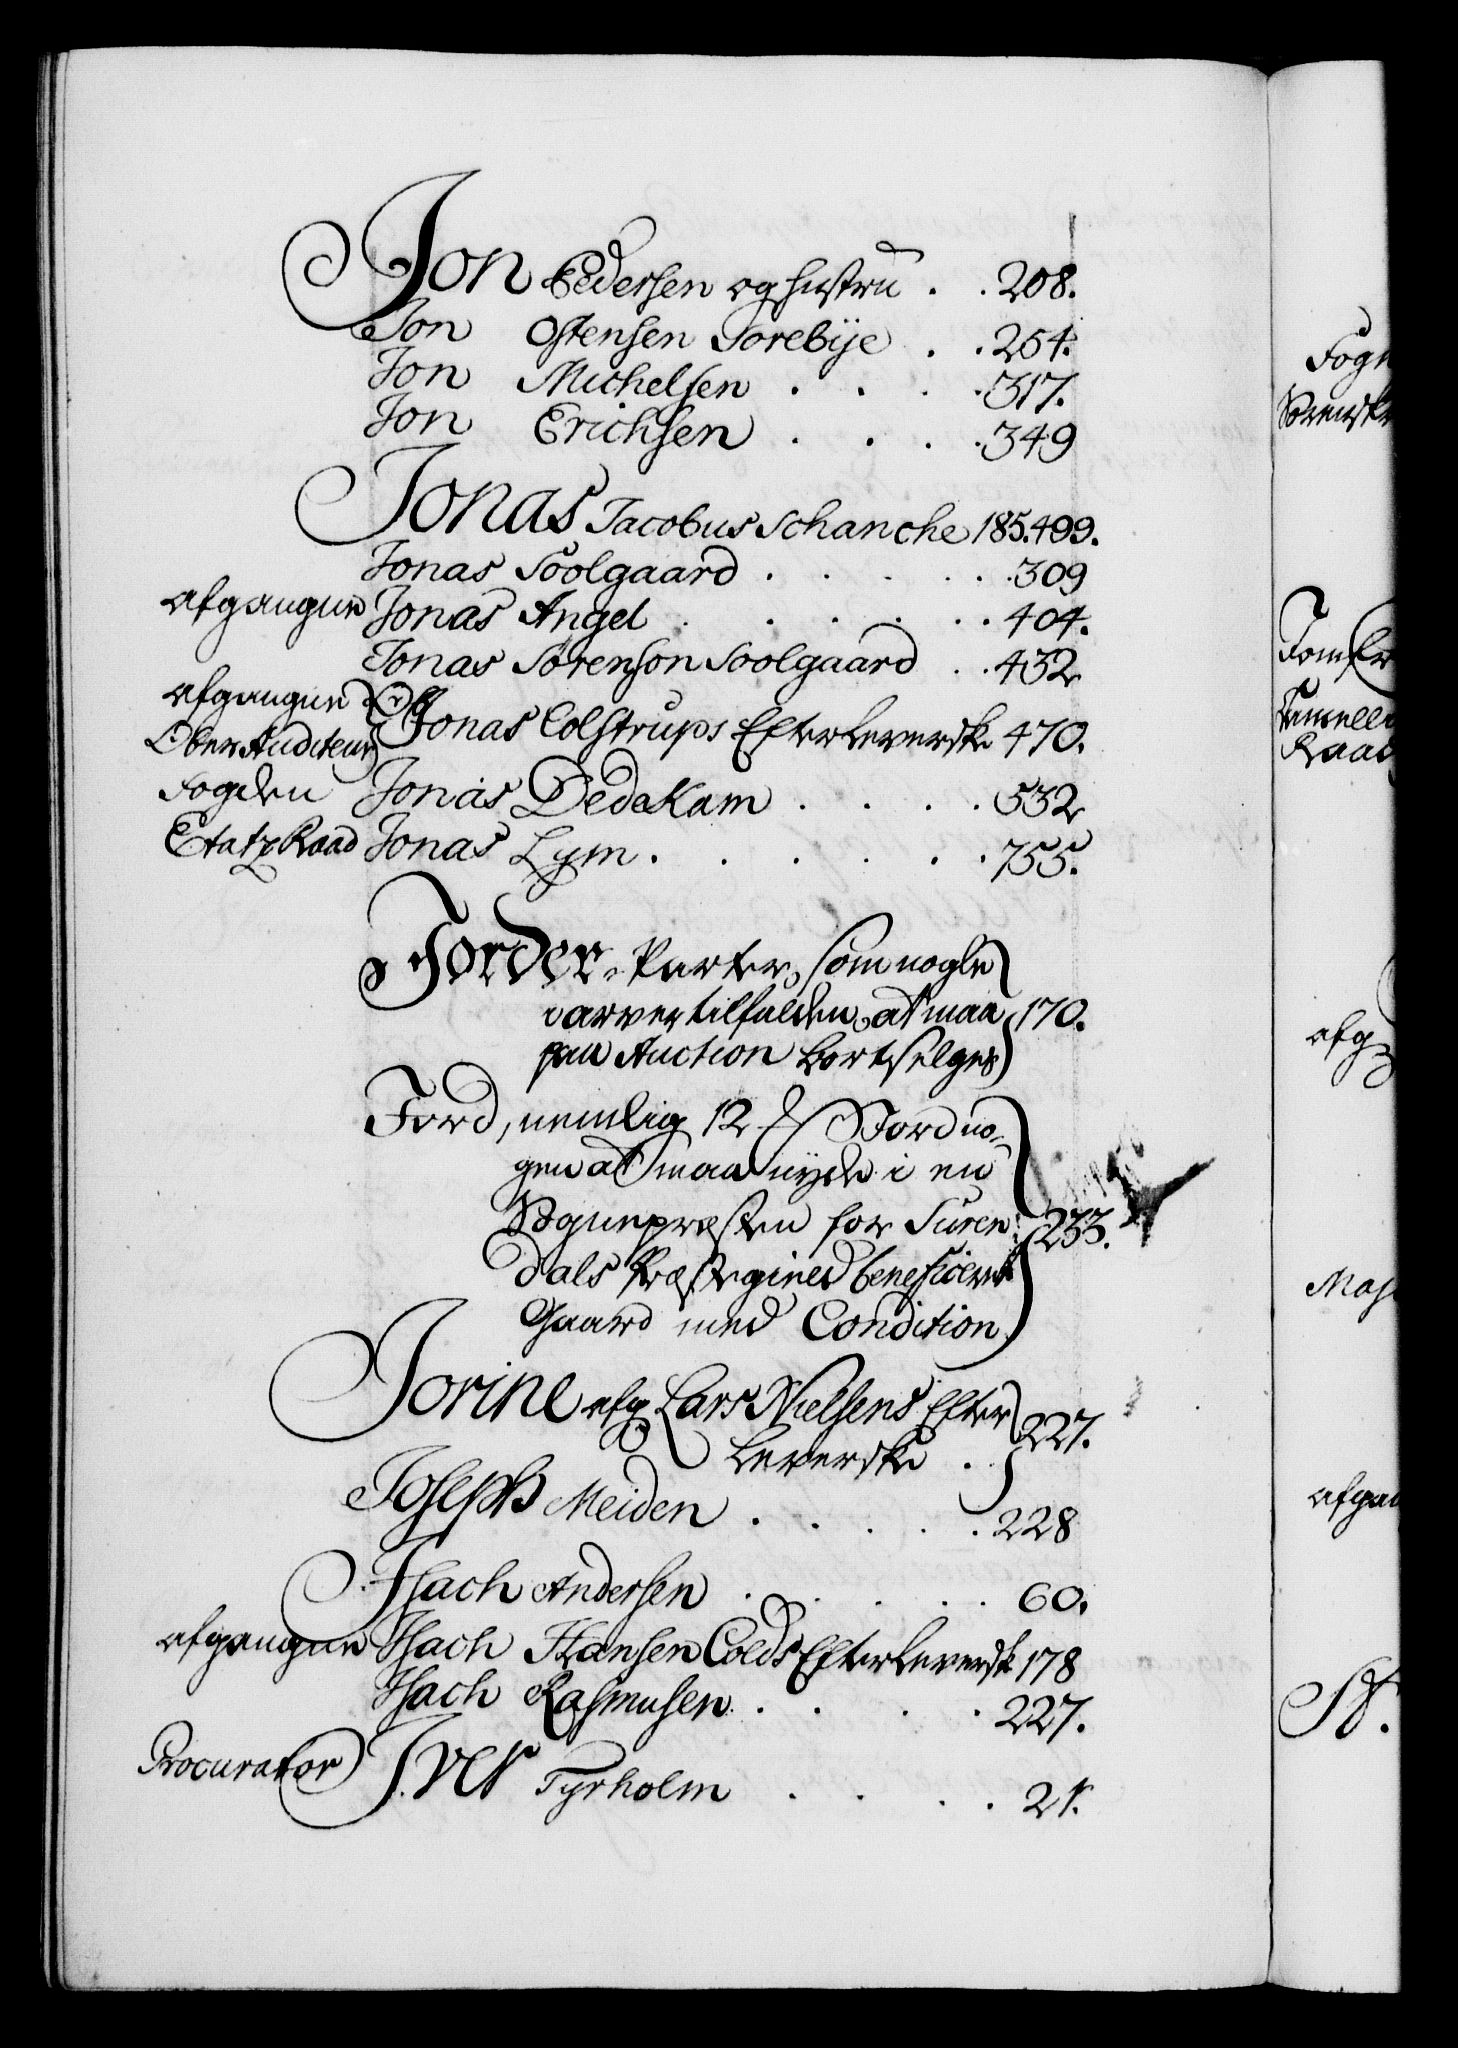 Jon Pedersen og hustru . . 208.
Jon Ostensen Torebÿe . . 254.
Jon Michelsen . . . . 317.
Jon Erichsen . . . . 349
Jonas Jacobus Schanche 185.499.
Jonas Soolgaard . . . . . 309
afgangne Jonas Angel . . . . . . 404.
Jonas Sörenson Soolgaard . . 432
afgangne
Ober Auditeur Jonas Colstrups Efterleverske 470.
Fogden Jonas Dedekam . . . . 532
Etatz Raad Jonas Lym . . . . . . 755.
Jorder-Parter, som nogle
i arver tilfalden, at maa 170.
paa Auction bortselges
Jord, nemlig 12 Jord no-
gen at maa nÿde i en
Sognepræsten for Suren-
dals Præstegield beneficeret 233.
Gaard med Condition
Jorine afg. Lars Nielsens Efter
leverske . 227.
Joseph Meiden . . . . . 228
Isach Andersen . . . . 60.
afgangne Isach Hansen Colds Efterleversk 178
Isach Rasmusen . . . . 227.
Procurator Iver Tyrholm . . . . 21.
Fogn
Sorenskr
afg
Maj
afgan
St.